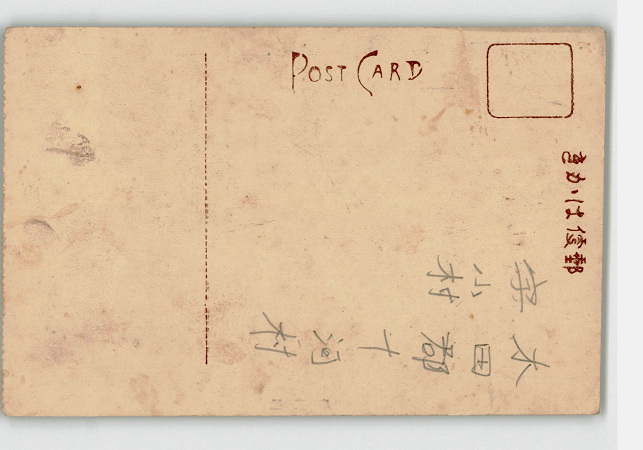 POST CARD
郵便はがき
木田郡十河村
字小村